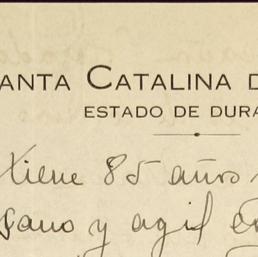 ANTA CATALINA D
ESTADO DE DURA
tiene 85 años
sano y agil en